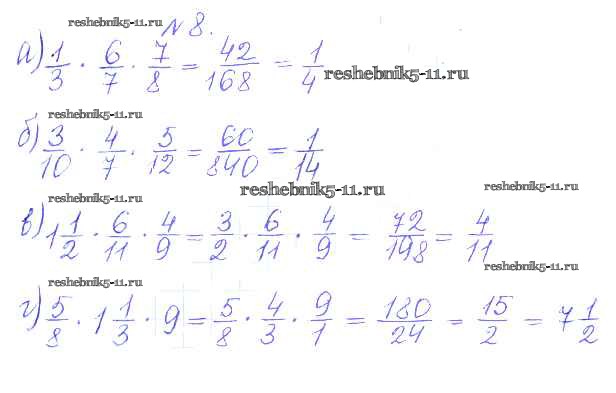 reshebnik5-11.ru
№ 8.
а) 1/3 · 6/7 · 7/8 = 42/168 = 1/4
reshebnik5-11.ru
reshebnik5-11.ru
б) 3/10 · 4/7 · 5/12 = 60/840 = 1/14
reshebnik5-11.ru
reshebnik5-11.ru
reshebnik5-11.ru
в) 1 1/2 · 6/11 · 4/9 = 3/2 · 6/11 · 4/9 = 72/198 = 4/11
reshebnik5-11.ru
reshebnik5-11.ru
г) 5/8 · 1 1/3 · 9 = 5/8 · 4/3 · 9/1 = 180/24 = 15/2 = 7 1/2